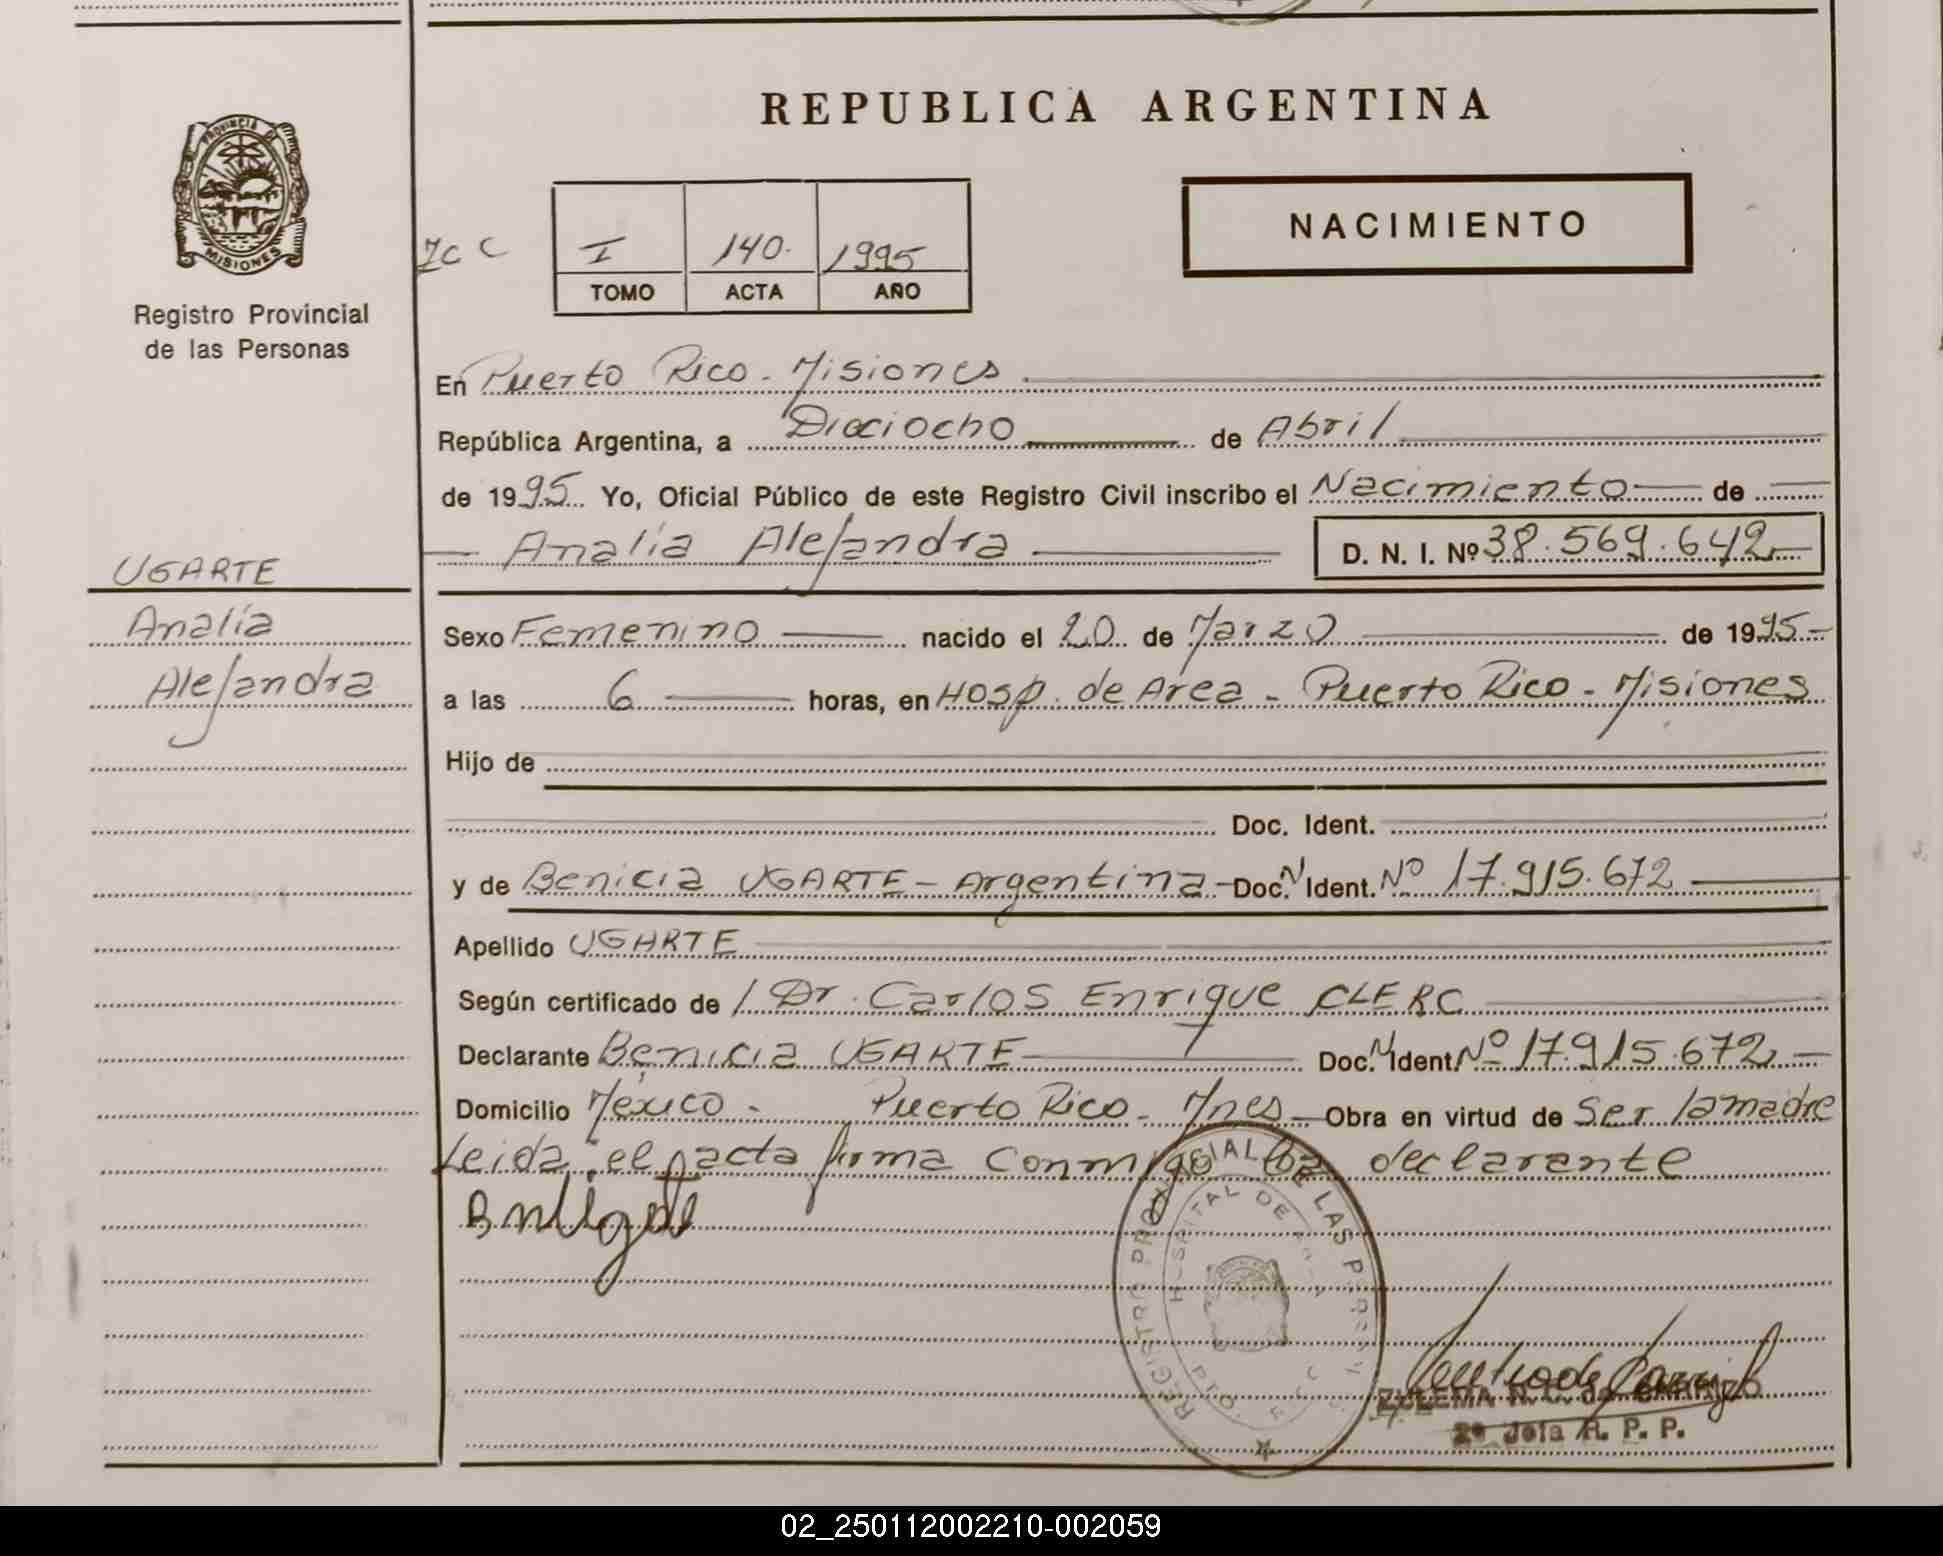 REPUBLICA ARGENTINA
PROVINCIA DE
MISIONES
Registro Provincial
de las Personas
I 140. 1995
TOMO ACTA AÑO
NACIMIENTO
En Puerto Rico - Misiones
República Argentina, a Dieciocho de Abril
de 1995 Yo, Oficial Público de este Registro Civil inscribo el Nacimiento de
Analía Alejandra D. N. I. Nº 38.569.642
UGARTE
Analía
Alejandra
Sexo Femenino nacido el 20 de Marzo de 1995
a las 6 horas, en Hosp. de Area - Puerto Rico - Misiones
Hijo de
Doc. Ident.
y de Benicia UGARTE - Argentina - Doc. N. Ident. Nº 17.915.672
Apellido UGARTE
Según certificado de Dr. Carlos Enrique CLERC
Declarante Benicia UGARTE Doc. N. Ident. Nº 17.915.672
Domicilio México - Puerto Rico - Mnes - Obra en virtud de Ser la madre
Leida el acta firma conmigo la declarante
REGISTRO PROVINCIAL DE LAS PERSONAS
HOSPITAL DE
PTO.
ZULEMA N. de
2º Jefa R. P. P.
02_250112002210-002059